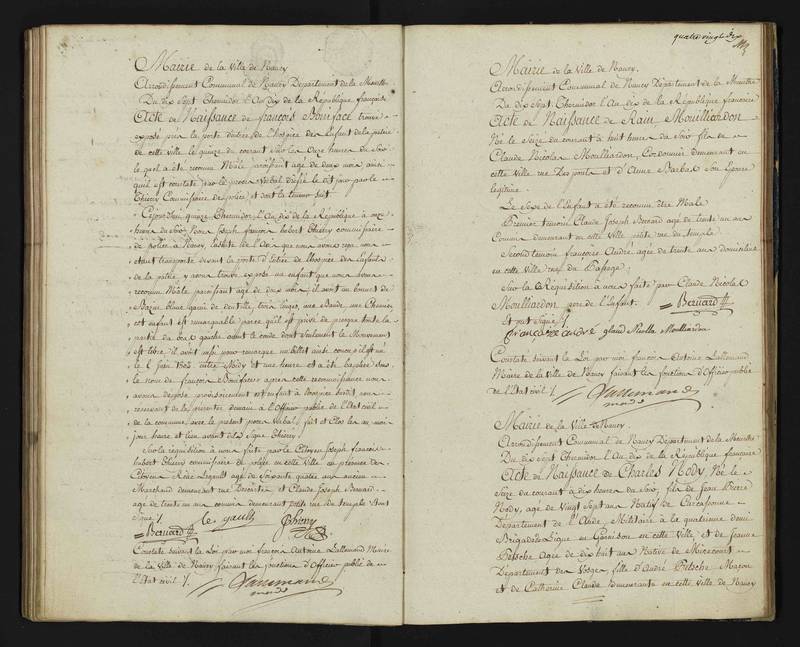 Mairie de la Ville de Nancy
Arrondissement Communal de Nancy Département de la Meurthe
Du dix Sept Thermidor l'An dix de la République française
Acte de Naissance de françois Boniface trouvé
exposé près la porte d'entrée de l'hospice des Enfants de la patrie
de cette ville le quinze du courant Sur les Onze heures du Soir
le quel a été reconnu Mâle paraissant agé de deux mois, ainsi
qu'il est constaté par le procès Verbal dressé le dit jour par le
Thiéry Commissaire de police et dont la teneur Suit
Cejourd'hui quinze Thermidor l'An dix de la République à onze
heures du Soir Nous Joseph françois hubert Thiéry commissaire
de police à Nancy, ensuite de l'Avis que nous avons reçu nous
étant transporté devant la porte d'Entrée de l'hospice des Enfants
de la patrie y avons trouvé exposé un enfant que nous avons
reconnu Mâle paraissant agé de deux mois; il avoit un bonnet de
Bazin blanc garni de dentelle, trois langes, une Bande, une Chemise
cet enfant est remarquable parce qu'il est privé de presque toute la
partie du bras gauche avant le coude dont seulement le Mouvement
est libre, il avoit aussi pour remarque un billet ainsi conçu, il est né
le 6 juin 1802 entre Midy et une heure et a été baptisé sous
le nom de françois Boniface; après cette reconnaissance nous
avons déposé provisoirement cet enfant à l'hospice Susdit, nous
réservant de le présenter demain à l'Officier public de l'Etat civil
de la commune, avec le présent procès Verbal, fait et Clos les an mois
jour, heure et lieu avant dits Signé Thiéry.
Sur la réquisition à nous faite par le Citoyen Joseph françois
hubert Thiéry commissaire de police en cette Ville en présence des
Citoyens René Legault agé de Soixante quatre ans ancien
Marchand demeurant rue Descartes et Claude Joseph Bernard
agé de trente un ans commis demeurant petite rue du temple Ont
Signé /.
Le gault
Thiery
Bernard
Constaté Suivant la Loi par moi françois Antoine Lallemand Maire
de la Ville de Nancy faisant les fonctions d'Officier public de
l'Etat civil /.
Lallemand
maire
quatre vingt dix
Mairie de la Ville de Nancy.
Arrondissement Communal de Nancy Département de la Meurthe
Du dix Sept Thermidor l'An dix de la République française
Acte de Naissance de Rain Moulliardon
Né le Seize du courant à huit heures du Soir fils de
Claude Nicolas Moulliardon, Cordonnier demeurant en
cette Ville rue des ponts et d'Anne Barbas Son Epouse
légitime.
Le Sexe de l'Enfant a été reconnu être Mâle
Premier témoin Claude Joseph Bernard agé de trente un ans
Commis demeurant en cette Ville petite rue du temple
Second témoin françoise André, agée de trente ans domiciliée
en cette Ville rue du Passage
Sur la Réquisition à nous faite par Claude Nicolas
Moulliardon père de l'Enfant.
Et ont Signé /.
Bernard
françoise andré
Claud Nicolla Moulliardon
Constaté Suivant la Loi par moi françois Antoine Lallemand
Maire de la Ville de Nancy faisant les fonctions d'Officier public
de l'Etat civil /.
Lallemand
maire
Mairie de la Ville de Nancy.
Arrondissement Communal de Nancy Département de la Meurthe
Du dix Sept Thermidor l'An dix de la République française
Acte de Naissance de Charles Nody, Né le
Seize du courant à dix heures du Soir, fils de Jean Pierre
Nody, agé de Vingt Sept ans Natif de Carcassonne
Département de l'Aude, Militaire à la quatrième demi
Brigade de Ligne en Garnison en cette Ville et de Jeanne
Petsche Agée de dix huit ans Native de Mirecourt
Département des Vosges, fille d'André Petsche Maçon
et de Catherine Claude demeurants en cette Ville de Nancy